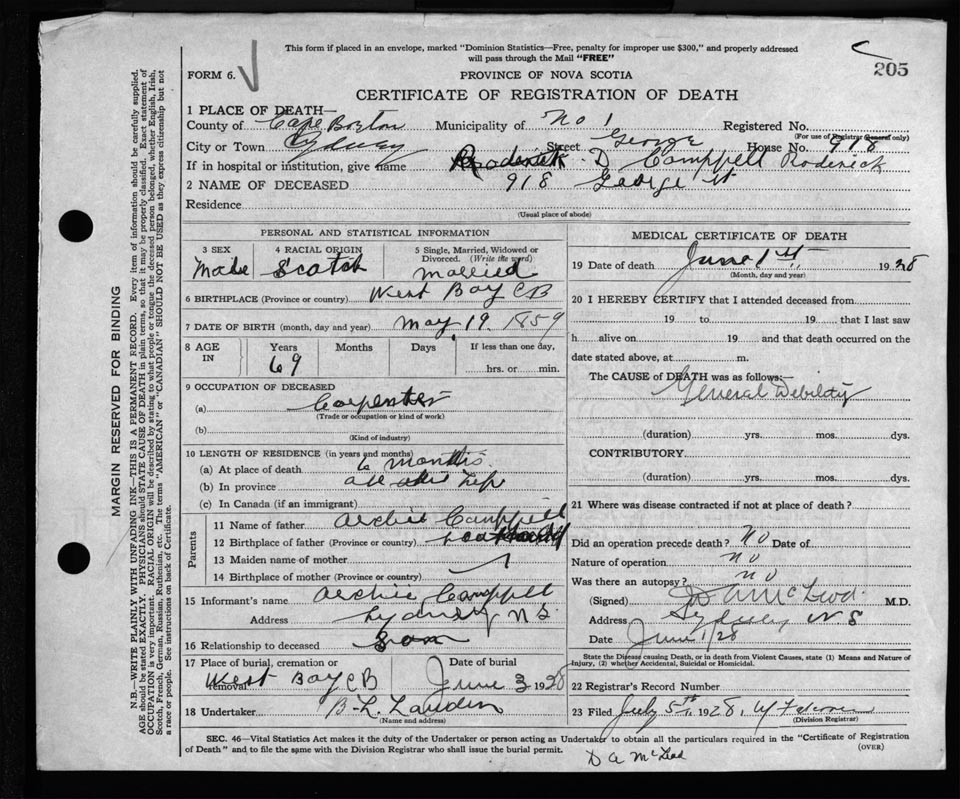 This form if placed in an envelope, marked "Dominion Statistics—Free, penalty for improper use $300," and properly addressed
will pass through the Mail "FREE"
205
FORM 6.
PROVINCE OF NOVA SCOTIA
CERTIFICATE OF REGISTRATION OF DEATH
1 PLACE OF DEATH—
County of Cape Breton Municipality of No 1 Registered No.
(For use of Registrar General only)
City or Town Sydney Street George House No. 918
If in hospital or institution, give name Roderick D Campbell Roderick
2 NAME OF DECEASED 918 George St
Residence
(Usual place of abode)
PERSONAL AND STATISTICAL INFORMATION
3 SEX Male
4 RACIAL ORIGIN Scotch
5 Single, Married, Widowed or Divorced. (Write the word) Married
6 BIRTHPLACE (Province or country) West Bay CB
7 DATE OF BIRTH (month, day and year) May 19 1859
8 AGE IN Years 69 Months Days If less than one day, hrs. or min.
9 OCCUPATION OF DECEASED
(a) Carpenter
(Trade or occupation or kind of work)
(b)
(Kind of industry)
10 LENGTH OF RESIDENCE (in years and months)
(a) At place of death 6 months
(b) In province all life
(c) In Canada (if an immigrant)
Parents
11 Name of father Archie Campbell
12 Birthplace of father (Province or country) Scotland
13 Maiden name of mother
14 Birthplace of mother (Province or country)
15 Informant's name Archie Campbell
Address Sydney N S
16 Relationship to deceased Son
17 Place of burial, cremation or removal West Bay CB
Date of burial June 3 1928
18 Undertaker B. L.
(Name and address)
MEDICAL CERTIFICATE OF DEATH
19 Date of death June 1st 1928
(Month, day and year)
20 I HEREBY CERTIFY that I attended deceased from
19 to 19 that I last saw
h alive on 19 and that death occurred on the
date stated above, at m.
The CAUSE of DEATH was as follows:—
General Debility
(duration) yrs. mos. dys.
CONTRIBUTORY
(duration) yrs. mos. dys.
21 Where was disease contracted if not at place of death?
Did an operation precede death? No Date of
Nature of operation no
Was there an autopsy? no
(Signed) McLeod M.D.
Address Sydney N S
Date June 1/28
State the Disease causing Death, or in death from Violent Causes, state (1) Means and Nature of
Injury, (2) whether Accidental, Suicidal or Homicidal.
22 Registrar's Record Number
23 Filed July 5th 1928,
(Division Registrar)
SEC. 46—Vital Statistics Act makes it duty of the Undertaker or person acting as Undertaker to obtain all the particulars required in the "Certificate of Registration
of Death" and to file the same with the Division Registrar who shall issue the burial permit.
(OVER)
D A McLeod
MARGIN RESERVED FOR BINDING
N.B.—WRITE PLAINLY WITH UNFADING INK—THIS IS A PERMANENT RECORD. Every item of information should be carefully supplied.
AGE should be stated EXACTLY. PHYSICIANS should STATE CAUSE OF DEATH in plain terms, so that it may be properly classified. Exact statement of
OCCUPATION is very important. RACIAL ORIGIN will be described by stating to what people or tongue the deceased person belonged, whether English, Irish,
Scotch, French, German, Russian, Ruthenian, etc. The terms "AMERICAN" or "CANADIAN" SHOULD NOT BE USED as they express citizenship but not
a race or people. See instructions on back of Certificate.